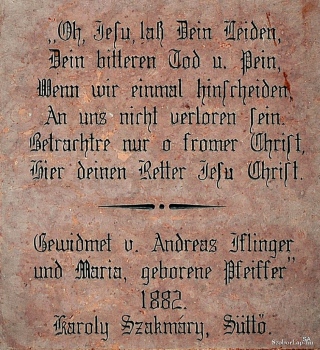 „Oh, Jesu, laß Dein Leiden,
Dein bitteren Tod u. Pein,
Wenn wir einmal hinscheiden,
An uns nicht verloren sein.
Betrachtre nur o fromer Christ,
Hier deinen Retter Jesu Christ.
Gewidmet v. Andreas Iflinger
und Maria, geborene Pfeiffer”
1882.
Károly Szakmáry, Süttő.
SzoborLap.hu